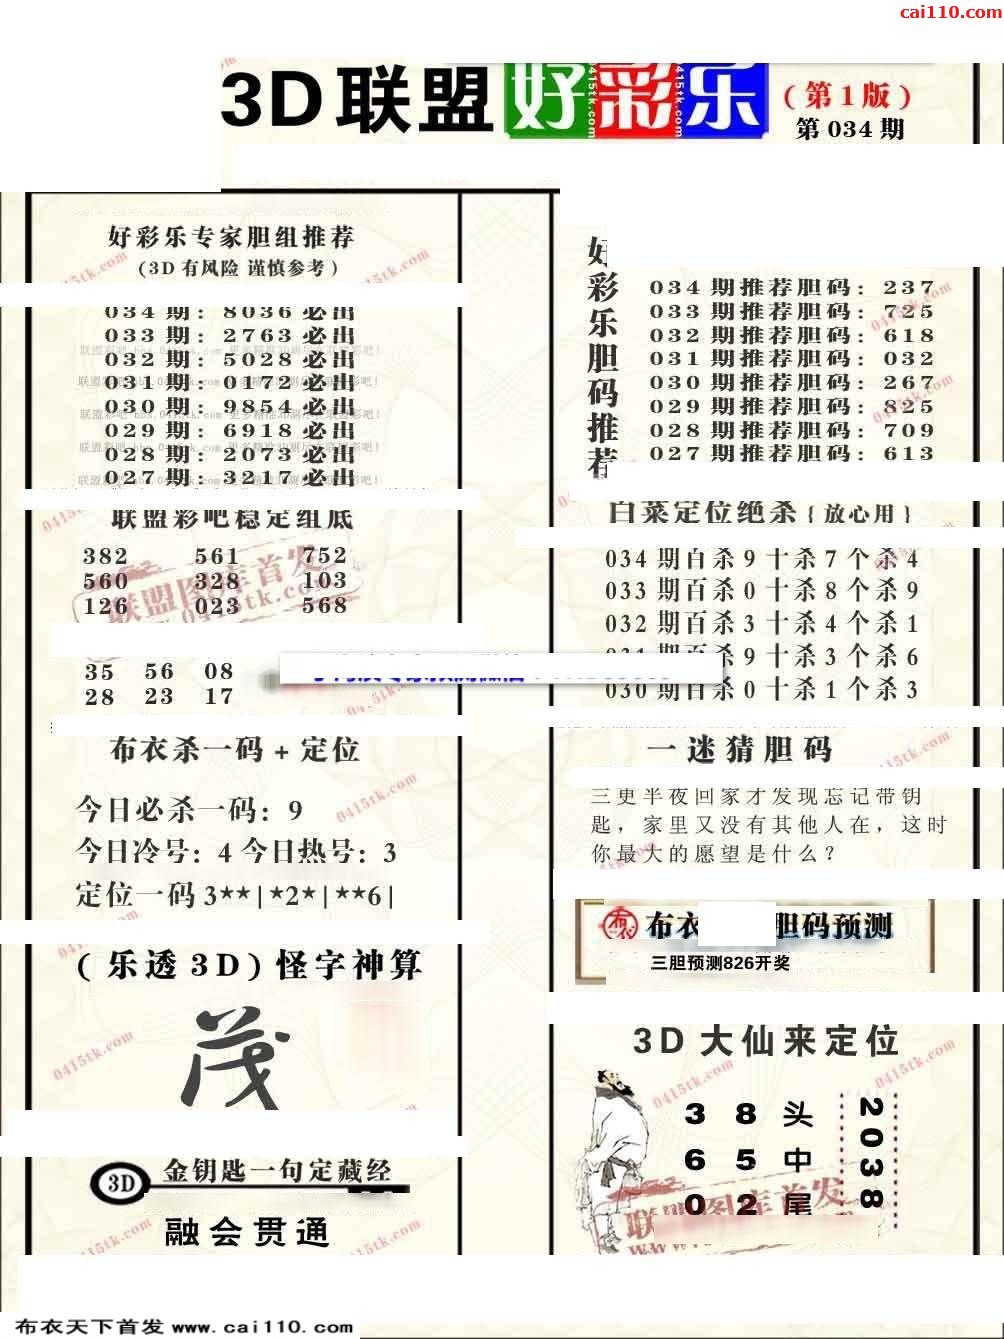 cai110.com
3D联盟 好彩乐 (第1版)
第 034 期
好彩乐专家胆组推荐
(3D 有风险 谨慎参考)
034 期: 8036 必出
033 期: 2763 必出
032 期: 5028 必出
031 期: 0172 必出
030 期: 9854 必出
029 期: 6918 必出
028 期: 2073 必出
027 期: 3217 必出
联盟彩吧稳定组底
382 561 752
560 328 103
126 023 568
35 56 08
28 23 17
布衣杀一码 + 定位
今日必杀一码: 9
今日冷号: 4 今日热号: 3
定位一码 3**|*2*|**6|
(乐透 3D) 怪字神算
茂
3D 金钥匙一句定藏经
融会贯通
好彩乐胆码推荐
034 期推荐胆码: 237
033 期推荐胆码: 725
032 期推荐胆码: 618
031 期推荐胆码: 032
030 期推荐胆码: 267
029 期推荐胆码: 825
028 期推荐胆码: 709
027 期推荐胆码: 613
白菜定位绝杀{放心用}
034 期百杀 9 十杀 7 个杀 4
033 期百杀 0 十杀 8 个杀 9
032 期百杀 3 十杀 4 个杀 1
杀 9 十杀 3 个杀 6
030 期百杀 0 十杀 1 个杀 3
一迷猜胆码
三更半夜回家才发现忘记带钥
匙，家里又没有其他人在，这时
你最大的愿望是什么？
布衣 布衣 胆码预测
三胆预测826开奖
3D 大仙来定位
3 8 头
6 5 中
0 2 尾
2038
联盟图库首发
0415tk.com
布衣天下首发 www.cai110.com